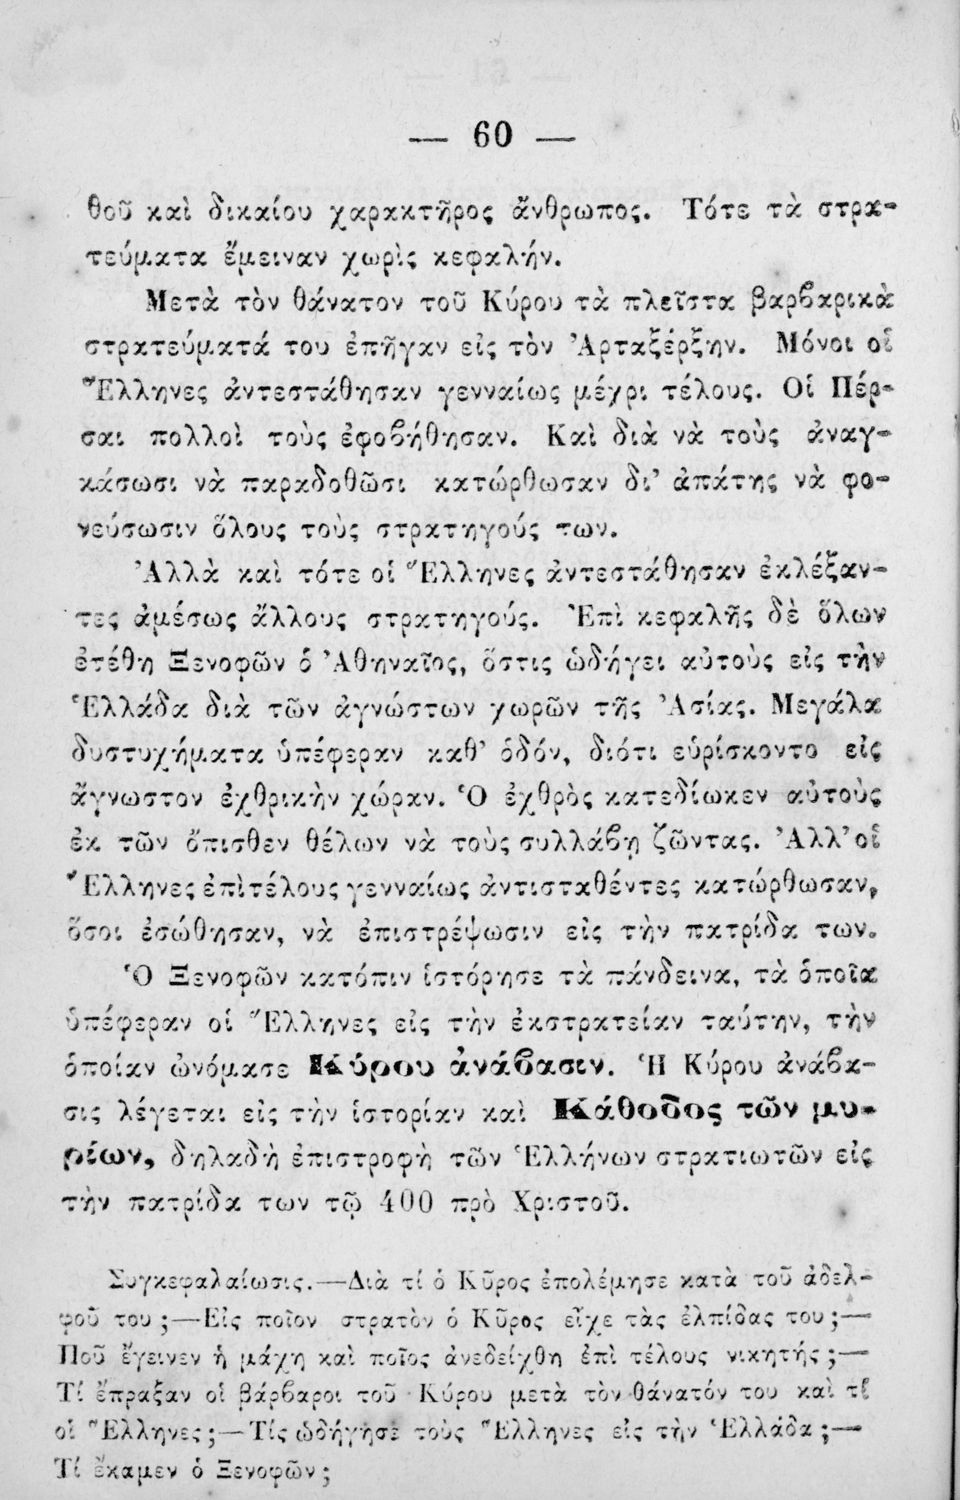 — 60 —
θοῦ καὶ δικαίου χαρακτῆρος ἄνθρωπος. Τότε τὰ στρα-
τεύματα ἔμειναν χωρὶς κεφαλήν.
Μετὰ τὸν θάνατον τοῦ Κύρου τὰ πλεῖστα βαρβαρικὰ
στρατεύματά του ἐπῆγαν εἰς τὸν Ἀρταξέρξην. Μόνοι οἱ
Ἕλληνες ἀντεστάθησαν γενναίως μέχρι τέλους. Οἱ Πέρ-
σαι πολλοὶ τοὺς ἐφοβήθησαν. Καὶ διὰ νὰ τοὺς ἀναγ-
κάσωσι νὰ παραδοθῶσι κατώρθωσαν δι’ ἀπάτης νὰ φο-
νεύσωσιν ὅλους τοὺς στρατηγούς των.
Ἀλλὰ καὶ τότε οἱ Ἕλληνες ἀντεστάθησαν ἐκλέξαν-
τες ἀμέσως ἄλλους στρατηγούς. Ἐπὶ κεφαλῆς δὲ ὅλων
ἐτέθη Ξενοφῶν ὁ Ἀθηναῖος, ὅστις ὡδήγει αὐτοὺς εἰς τὴν
Ἑλλάδα διὰ τῶν ἀγνώστων χωρῶν τῆς Ἀσίας. Μεγάλα
δυστυχήματα ὑπέφεραν καθ’ ὁδόν, διότι εὑρίσκοντο εἰς
ἄγνωστον ἐχθρικὴν χώραν. Ὁ ἐχθρὸς κατεδίωκεν αὐτοὺς
ἐκ τῶν ὄπισθεν θέλων νὰ τοὺς συλλάβῃ ζῶντας. Ἀλλ’ οἱ
Ἕλληνες ἐπὶ τέλους γενναίως ἀντισταθέντες κατώρθωσαν,
ὅσοι ἐσώθησαν, νὰ ἐπιστρέψωσιν εἰς τὴν πατρίδα των.
Ὁ Ξενοφῶν κατόπιν ἱστόρησε τὰ πάνδεινα, τὰ ὁποῖα
ὑπέφεραν οἱ Ἕλληνες εἰς τὴν ἐκστρατείαν ταύτην, τὴν
ὁποίαν ὠνόμασε Κύρου ἀνάβασιν. Ἡ Κύρου ἀνάβα-
σις λέγεται εἰς τὴν ἱστορίαν καὶ Κάθοδος τῶν μυ-
ρίων, δηλαδὴ ἐπιστροφὴ τῶν Ἑλλήνων στρατιωτῶν εἰς
τὴν πατρίδα των τῷ 400 πρὸ Χριστοῦ.
Συγκεφαλαίωσις.—Διὰ τί ὁ Κῦρος ἐπολέμησε κατὰ τοῦ ἀδελ-
φοῦ του ;—Εἰς ποῖον στρατὸν ὁ Κῦρος εἶχε τὰς ἐλπίδας του ;—
Ποῦ ἔγεινεν ἡ μάχη καὶ ποῖος ἀνεδείχθη ἐπὶ τέλους νικητής ;—
Τί ἔπραξαν οἱ βάρβαροι τοῦ Κύρου μετὰ τὸν θάνατόν του καὶ τί
οἱ Ἕλληνες ;—Τίς ὡδήγησε τοὺς Ἕλληνες εἰς τὴν Ἑλλάδα ;—
Τί ἔκαμεν ὁ Ξενοφῶν ;